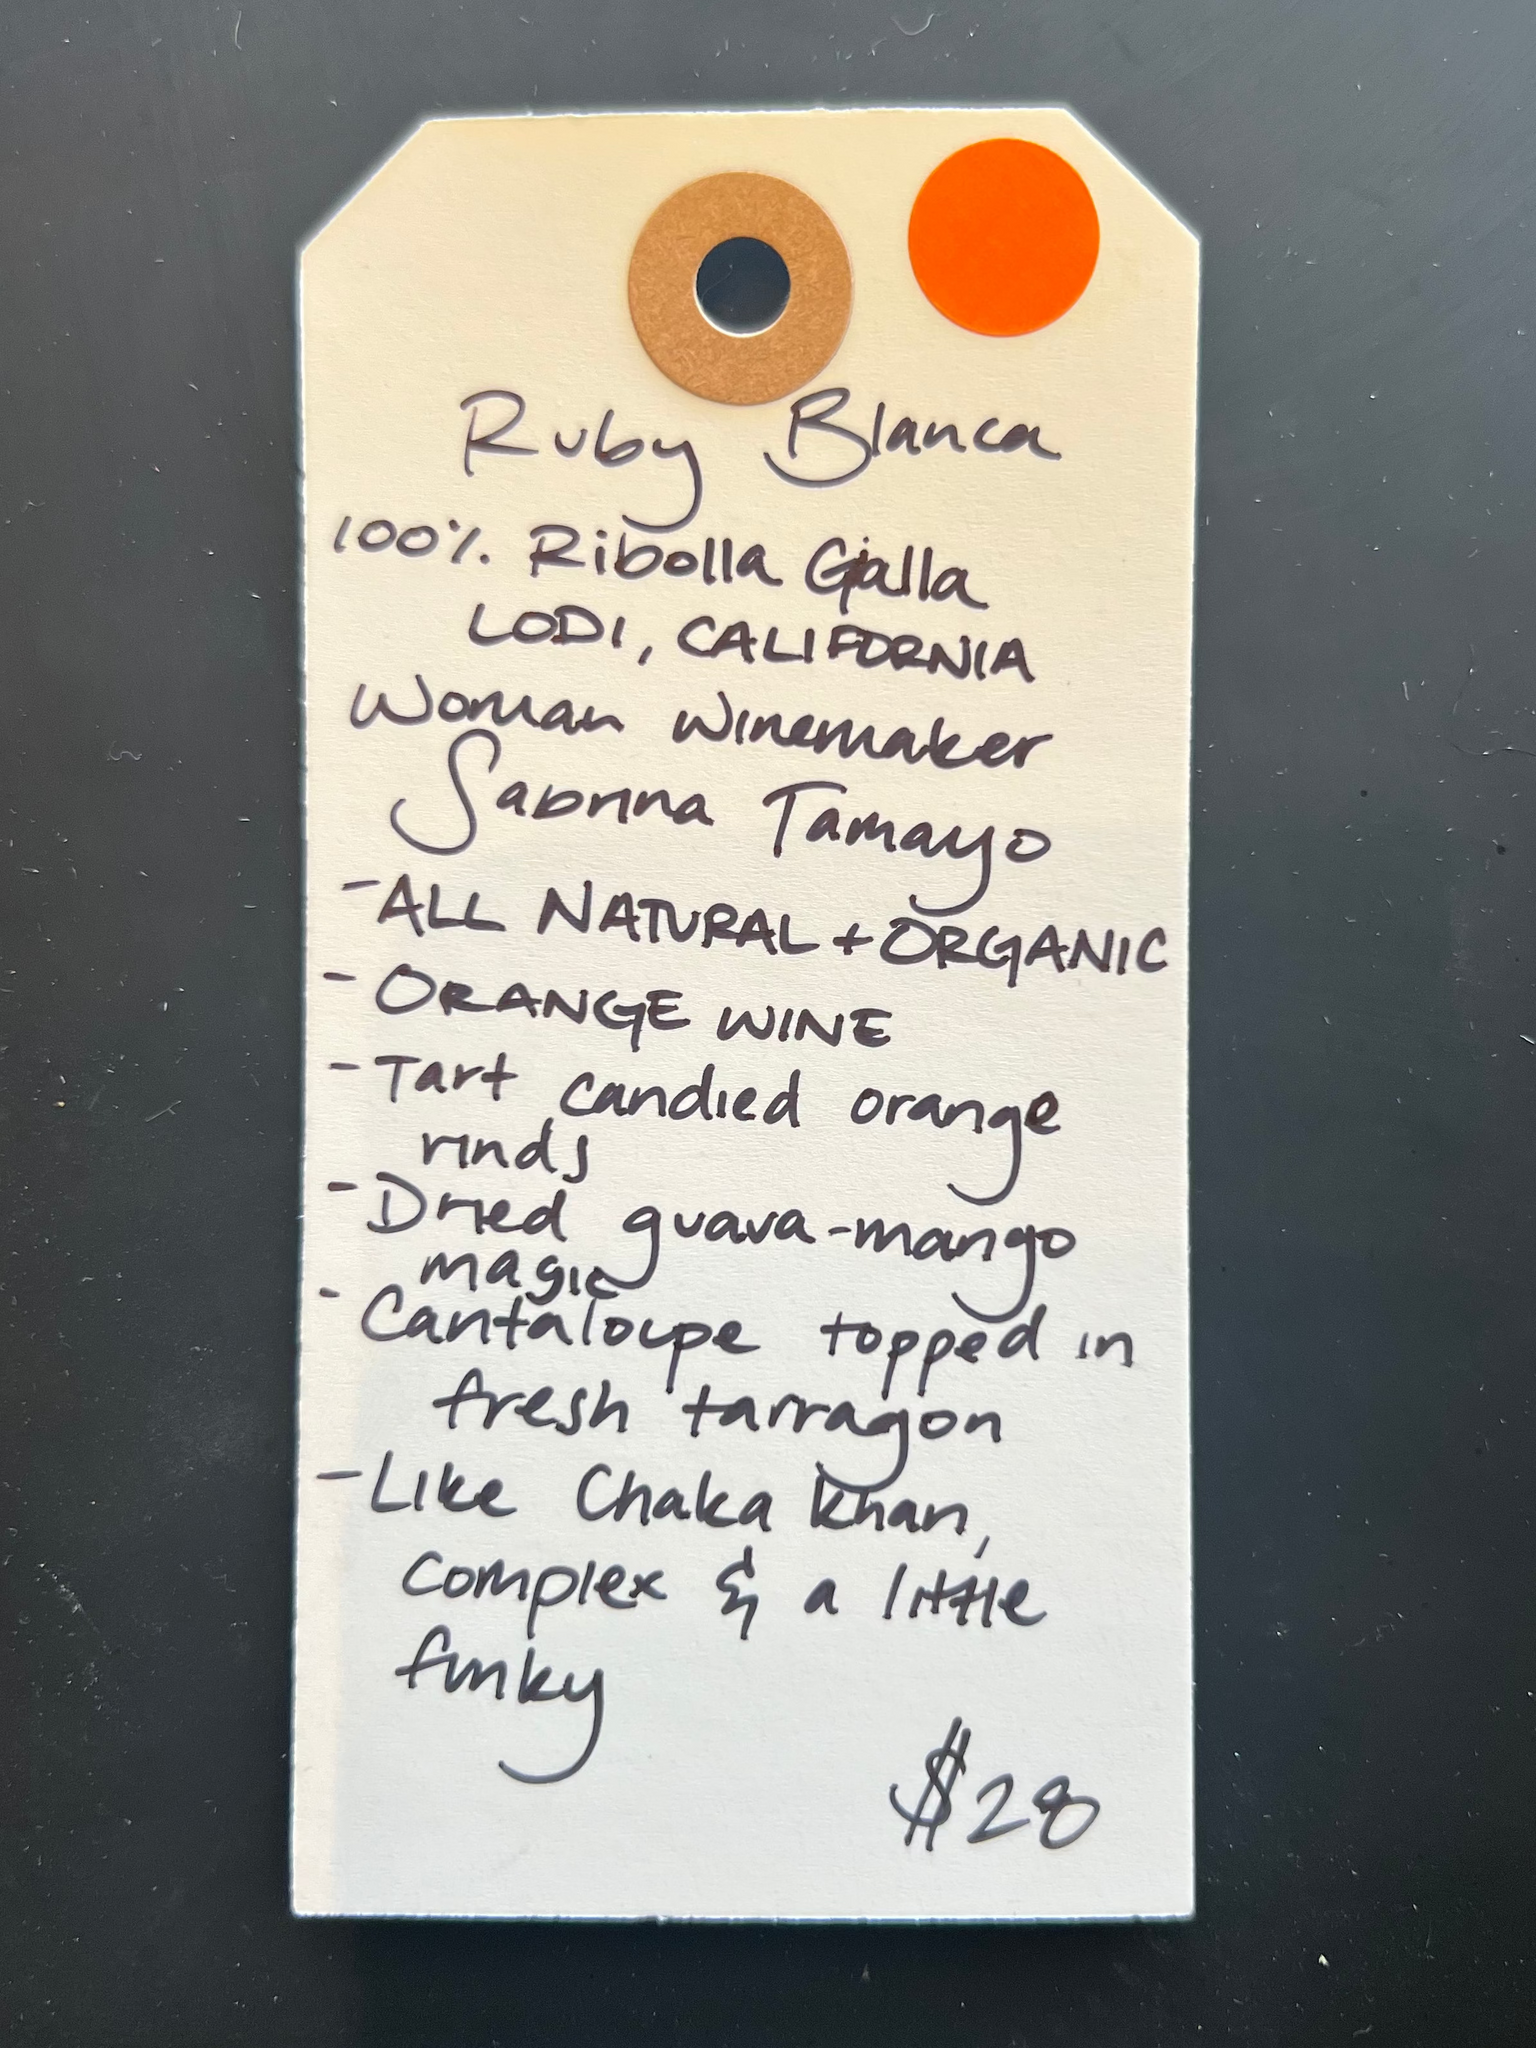 Ruby Blanca
100% Ribolla Gialla
LODI, CALIFORNIA
Woman Winemaker
Sabrina Tamayo
- ALL NATURAL + ORGANIC
- ORANGE WINE
- Tart candied orange
rinds
- Dried guava-mango
magic
- Cantaloupe topped in
fresh tarragon
- Like Chaka Khan,
complex & a little
funky
$28